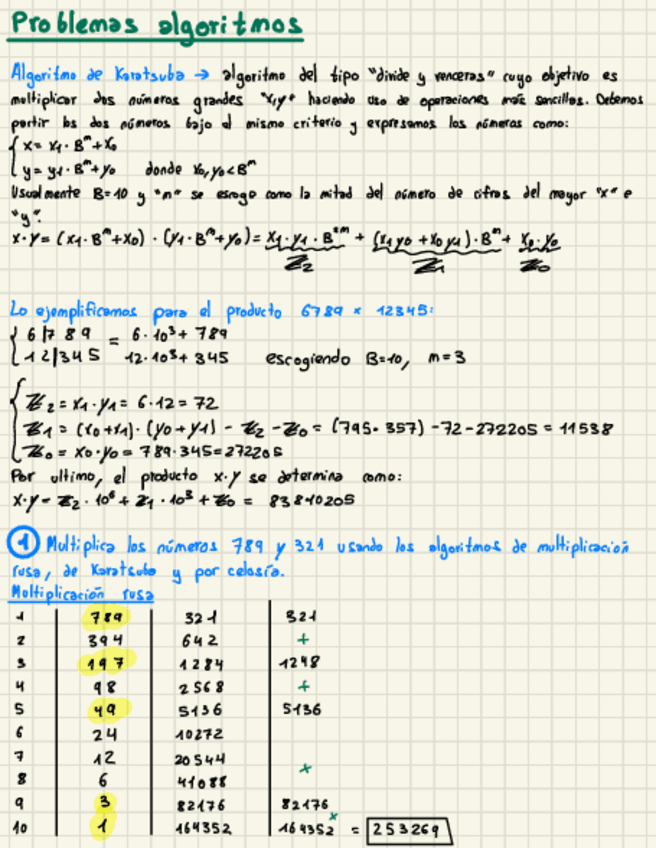 Problemas algoritmos
Algoritmo de Karatsuba → algoritmo del tipo "divide y vencerás" cuyo objetivo es
multiplicar dos números grandes "x,y" haciendo uso de operaciones más sencillas. Debemos
partir los dos números bajo el mismo criterio y expresamos los números como:
x = x₁·Bᵐ + x₀
y = y₁·Bᵐ + y₀ donde x₀, y₀ < Bᵐ
Usualmente B=10 y "m" se escoge como la mitad del número de cifras del mayor "x" e
"y".
x·y = (x₁·Bᵐ + x₀) · (y₁·Bᵐ + y₀) = x₁·y₁·B²ᵐ + (x₁y₀ + x₀y₁)·Bᵐ + x₀·y₀
Z₂ Z₁ Z₀
Lo ejemplificamos para el producto 6789 × 12345:
6|789 = 6·10³ + 789
12|345 12·10³ + 345 escogiendo B=10, m=3
Z₂ = x₁·y₁ = 6·12 = 72
Z₁ = (x₀+x₁)·(y₀+y₁) - Z₂ - Z₀ = (795·357) - 72 - 272205 = 11538
Z₀ = x₀·y₀ = 789·345 = 272205
Por ultimo, el producto x·y se determina como:
x·y = Z₂·10⁶ + Z₁·10³ + Z₀ = 83810205
1 Multiplica los números 789 y 321 usando los algoritmos de multiplicación
rusa, de Karatsuba y por celosía.
Multiplicación rusa
1 789 321 321
2 394 642 +
3 197 1284 1248
4 98 2568 +
5 49 5136 5136
6 24 10272
7 12 20544 +
8 6 41088
9 3 82176 82176
+
10 1 164352 164352 = 253269